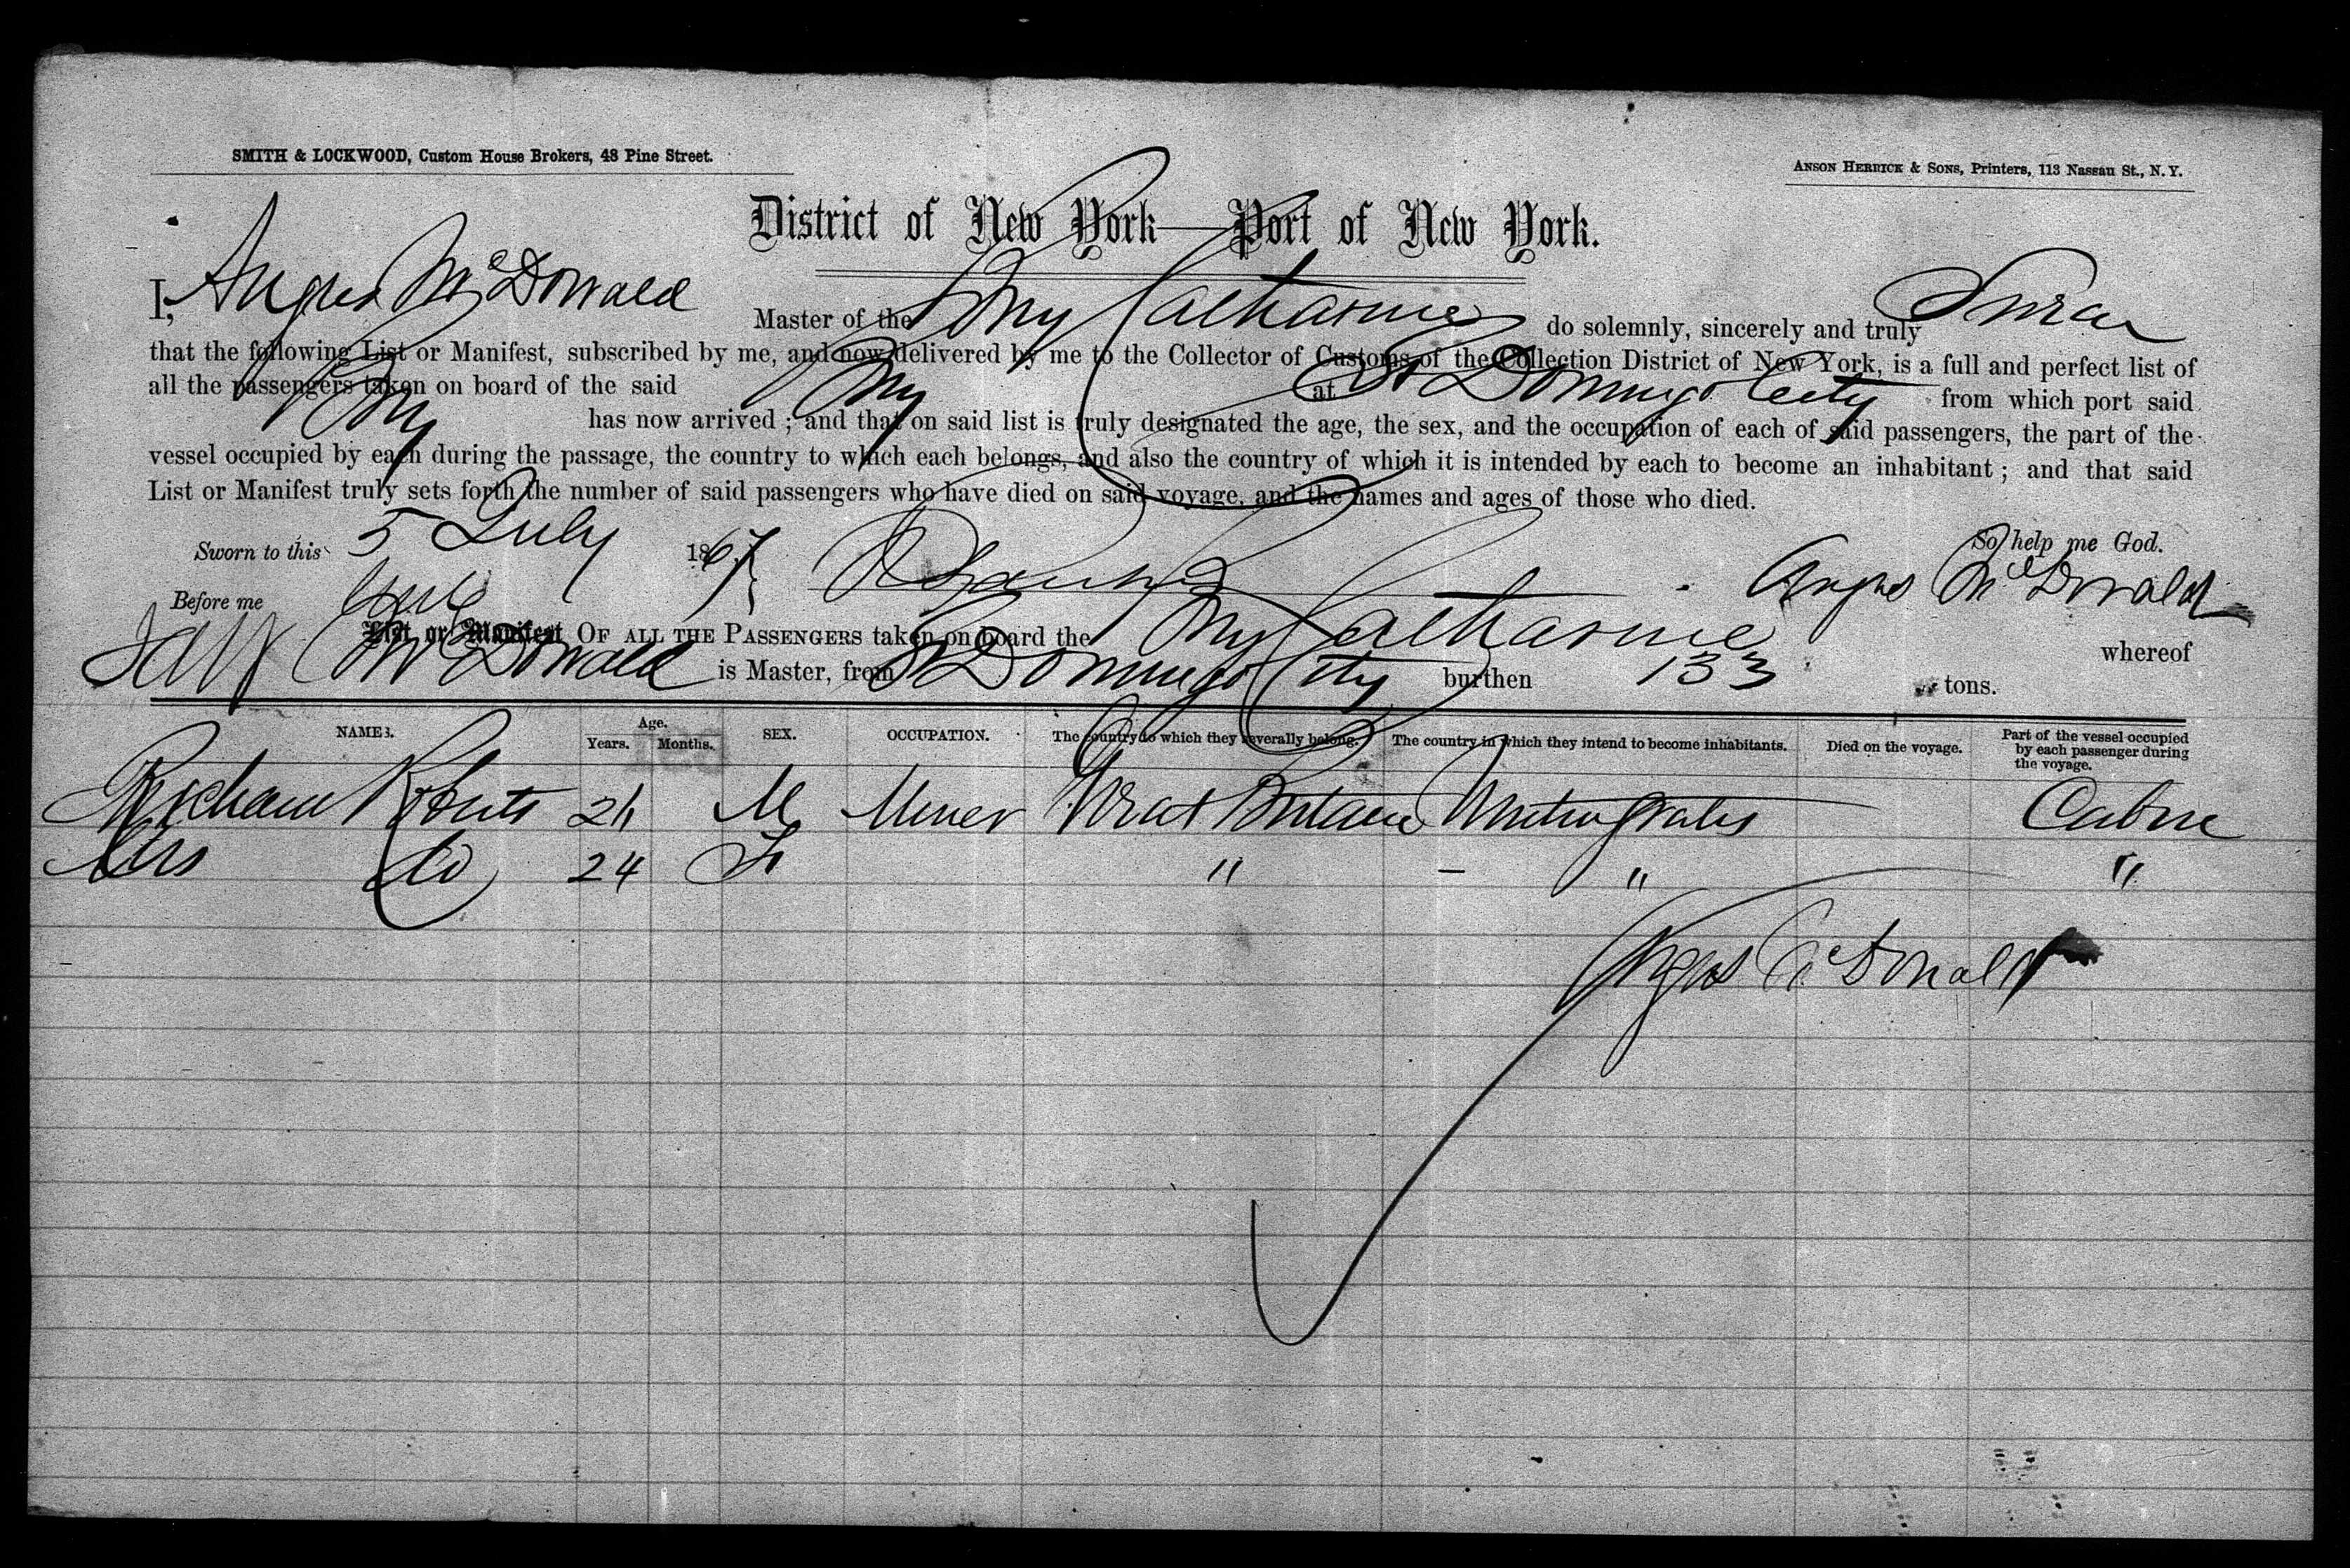 SMITH & LOCKWOOD, Custom House Brokers, 48 Pine Street.
ANSON HERRICK & SONS, Printers, 113 Nassau St., N. Y.
District of New York—Port of New York.
I, Angus McDonald Master of the Catharine do solemnly, sincerely and truly Swear
that the following List or Manifest, subscribed by me, and now delivered by me to the Collector of Customs of the Collection District of New York, is a full and perfect list of
all the passengers taken on board of the said at St Domingo City from which port said
has now arrived ; and that on said list is truly designated the age, the sex, and the occupation of each of said passengers, the part of the
vessel occupied by each during the passage, the country to which each belongs, and also the country of which it is intended by each to become an inhabitant ; and that said
List or Manifest truly sets forth the number of said passengers who have died on said voyage, and the names and ages of those who died.
Sworn to this 5 July 1867 So help me God.
Before me Angus McDonald
List or Manifest OF ALL THE PASSENGERS taken on board the Catharine whereof
McDonald is Master, from St Domingo City burthen 133 tons.
NAMES. Age. Years. Months. SEX. OCCUPATION. The country to which they severally belong. The country in which they intend to become inhabitants. Died on the voyage. Part of the vessel occupied by each passenger during the voyage.
Richard Roberts M Miner Great Britain United States Cabin
Mrs Do 24 F " " "
Angus McDonald